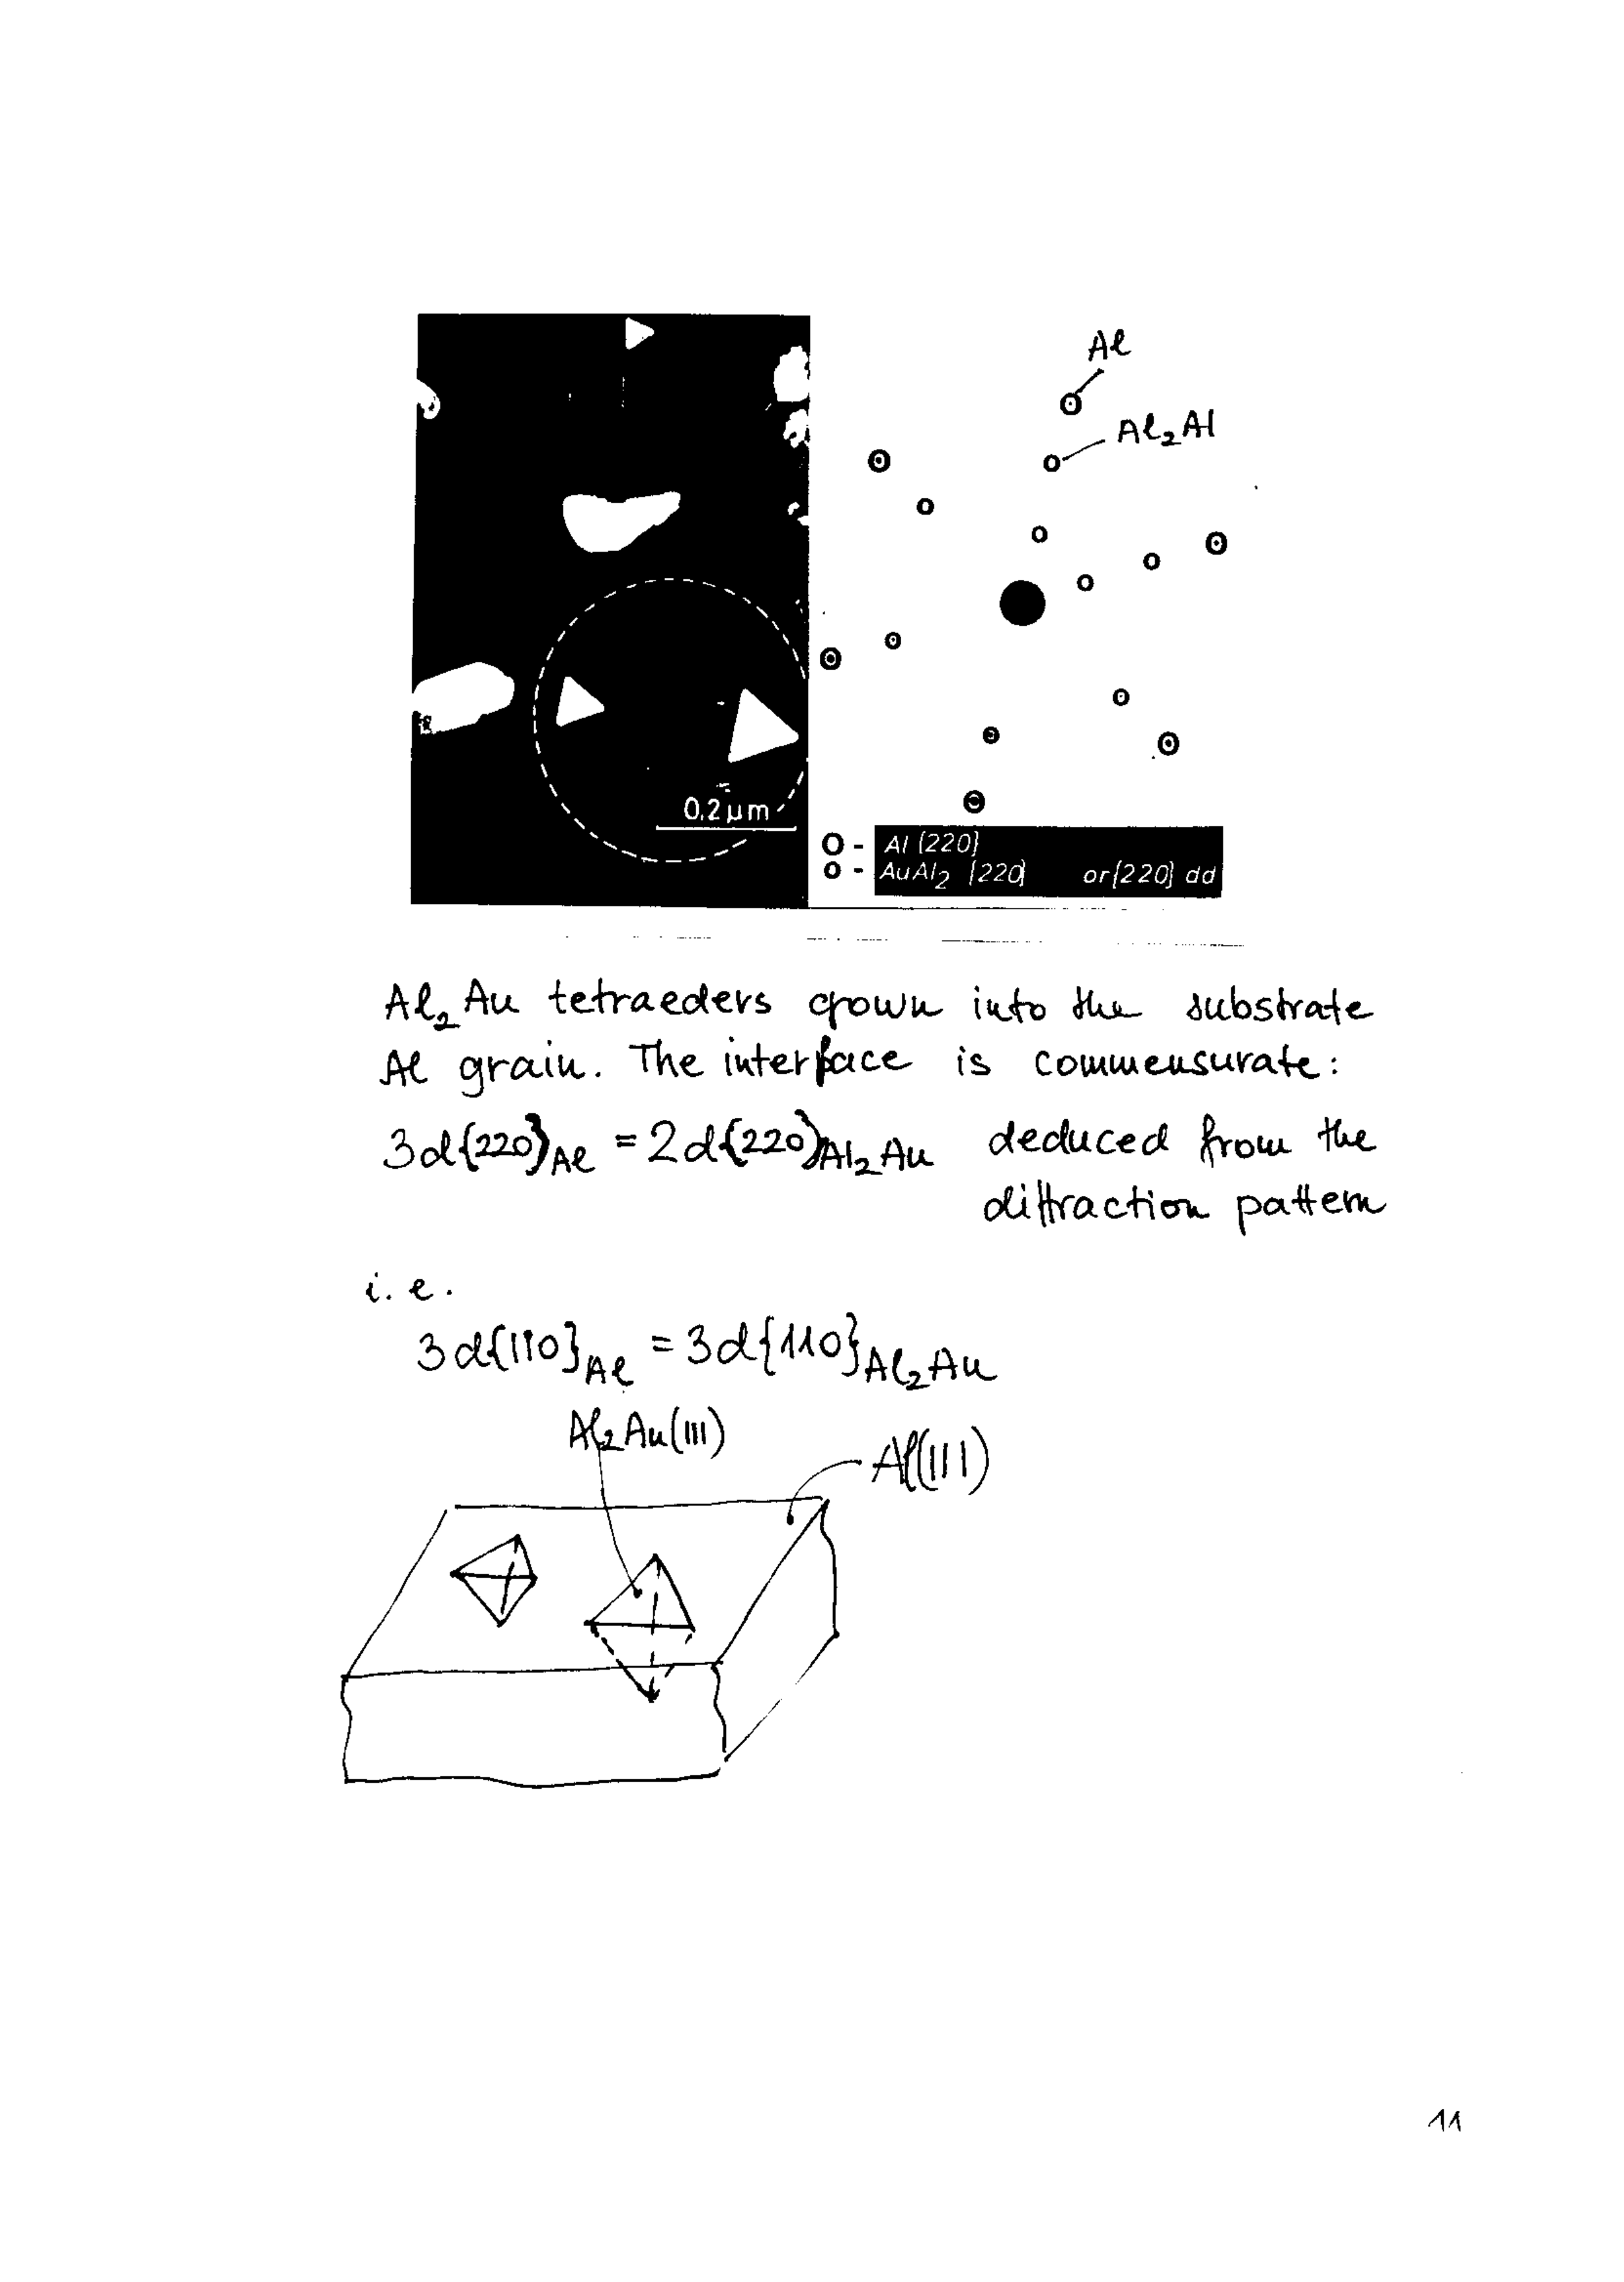 Al
Al₂Al
0.2 µm
O - Al {220}
o - AuAl₂ {220} or {220} dd
Al₂Au tetraeders grown into the substrate
Al grain. The interface is commensurate:
3d{220}Al = 2d{220}Al₂Au deduced from the
diffraction pattern
i.e.
3d{110}Al = 3d{110}Al₂Au
Al₂Au(111)
Al(111)
11